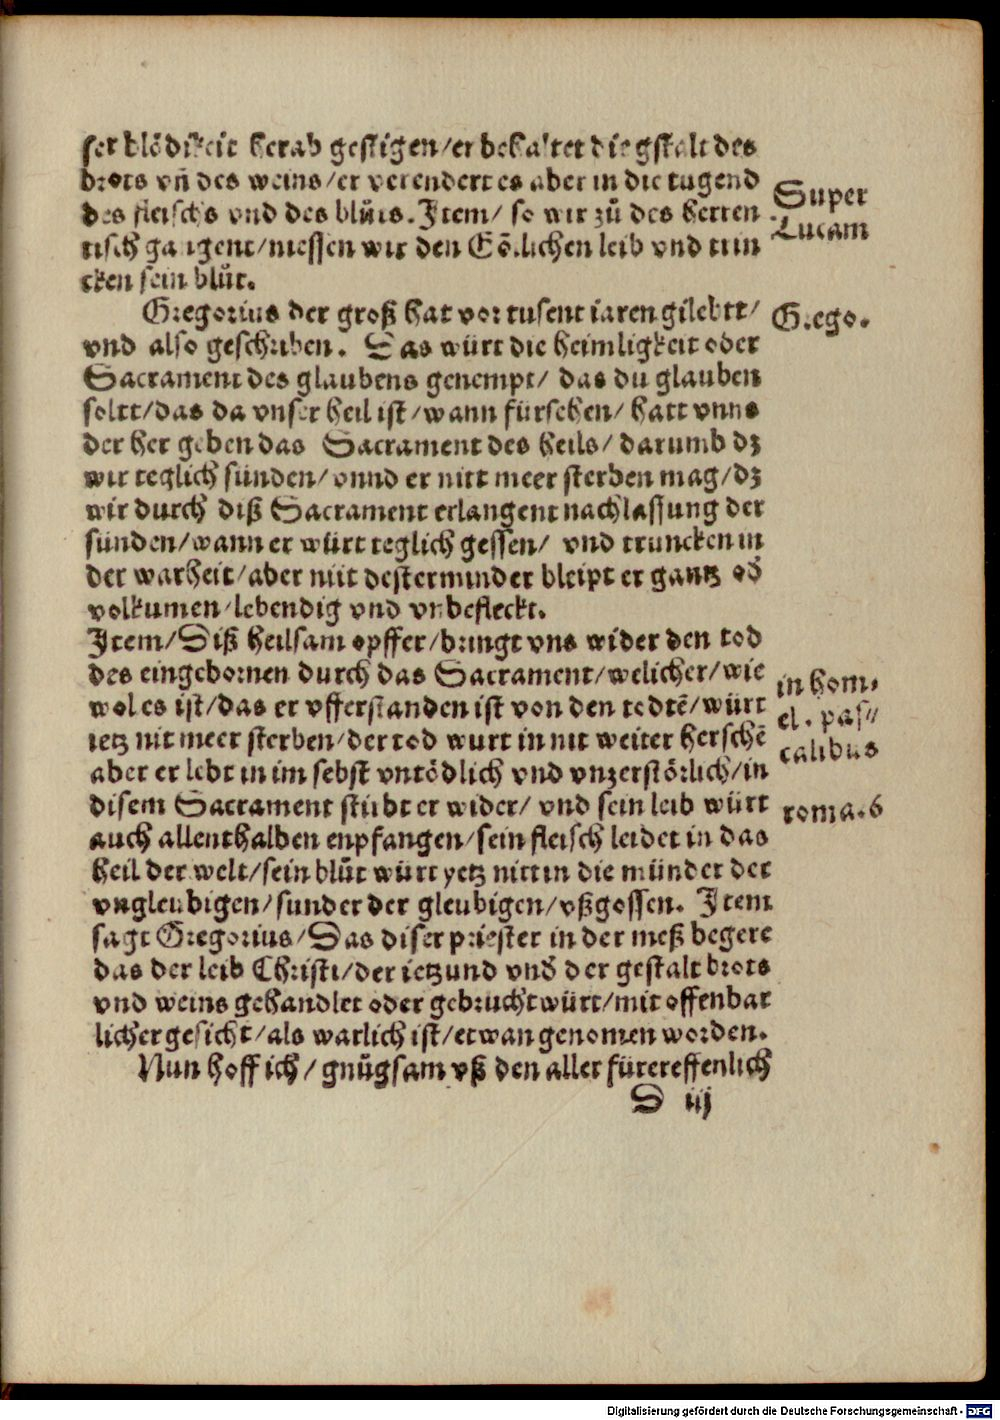 ser blödikeit herab gestigen/er behaltet die gstalt des
brots vñ des weins/er verendert es aber in die tugend
des fleischs vnd des blůts. Item/ so wir zů des herren
tisch gangent/niessen wir den Götlichen leib vnd trin
cken sein blůt.
Super
Lucam
Gregorius der groß hat vor tusent iaren gilebtt/
vnd also geschriben. Das würt die heimligkeit oder
Sacrament des glaubens genempt/ das du glauben
soltt/das da vnser heil ist/wann fürsehen/ hatt vnns
der her geben das Sacrament des heils/ darumb dz
wir teglich sünden/ vnnd er nitt meer sterben mag/dz
wir durch diß Sacrament erlangent nachlassung der
sünden/wann er würt teglich gessen/ vnd truncken in
der warheit/aber nüt destermınder bleipt er gantz od̃
volkumen/lebendig vnd vnbefleckt.
Grego.
Item/Diß heilsam opffer/bringt vns wider den tod
des eingebornen durch das Sacrament/welicher/wie
wol es ist/das er vfferstanden ist von den todtẽ/würt
ietz nit meer sterben/der tod wurt in nit weiter herschẽ
aber er lebt in im selbst vntödlich vnd vnzerstörlich/in
disem Sacrament stirbt er wider/ vnd sein leib würt
auch allenthalben enpfangen/sein fleisch leidet in das
heil der welt/sein blůt würt yetz nitt in die münder der
vngleubigen/sunder der gleubigen/vßgossen. Item
sagt Gregorius/Das diser priester in der meß begere
das der leib Christi/der ietzund vnd̃ der gestalt brots
vnd weins gehandlet oder gebrucht würt/mit offenbar
licher gesicht/als warlich ist/etwan genomen worden.
in hom.
el. pas//
calibus
roma.6
Nun hoff ich/ gnůgsam vß den aller fürereffenlich
D iij
Digitalisierung gefördert durch die Deutsche Forschungsgemeinschaft - DFG